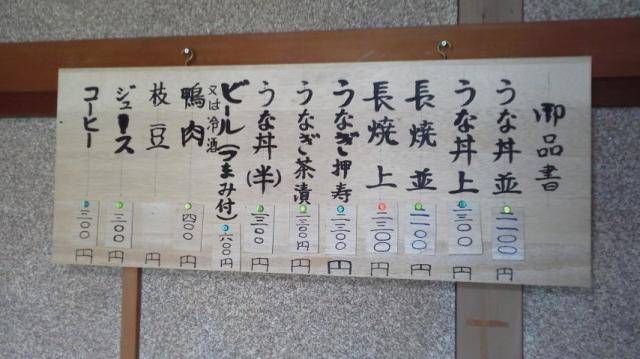 御品書
うな丼 並 二一〇〇円
うな丼 上 二三〇〇円
長焼 並 二一〇〇円
長焼 上 二三〇〇円
うなぎ押寿 二三〇〇円
うなぎ茶漬 二三〇〇円
うな丼(半) 一三〇〇円
ビール(つまみ付) 六〇〇円
又は冷酒
鴨肉 四〇〇円
枝豆 円
ジュース 三〇〇円
コーヒー 三〇〇円